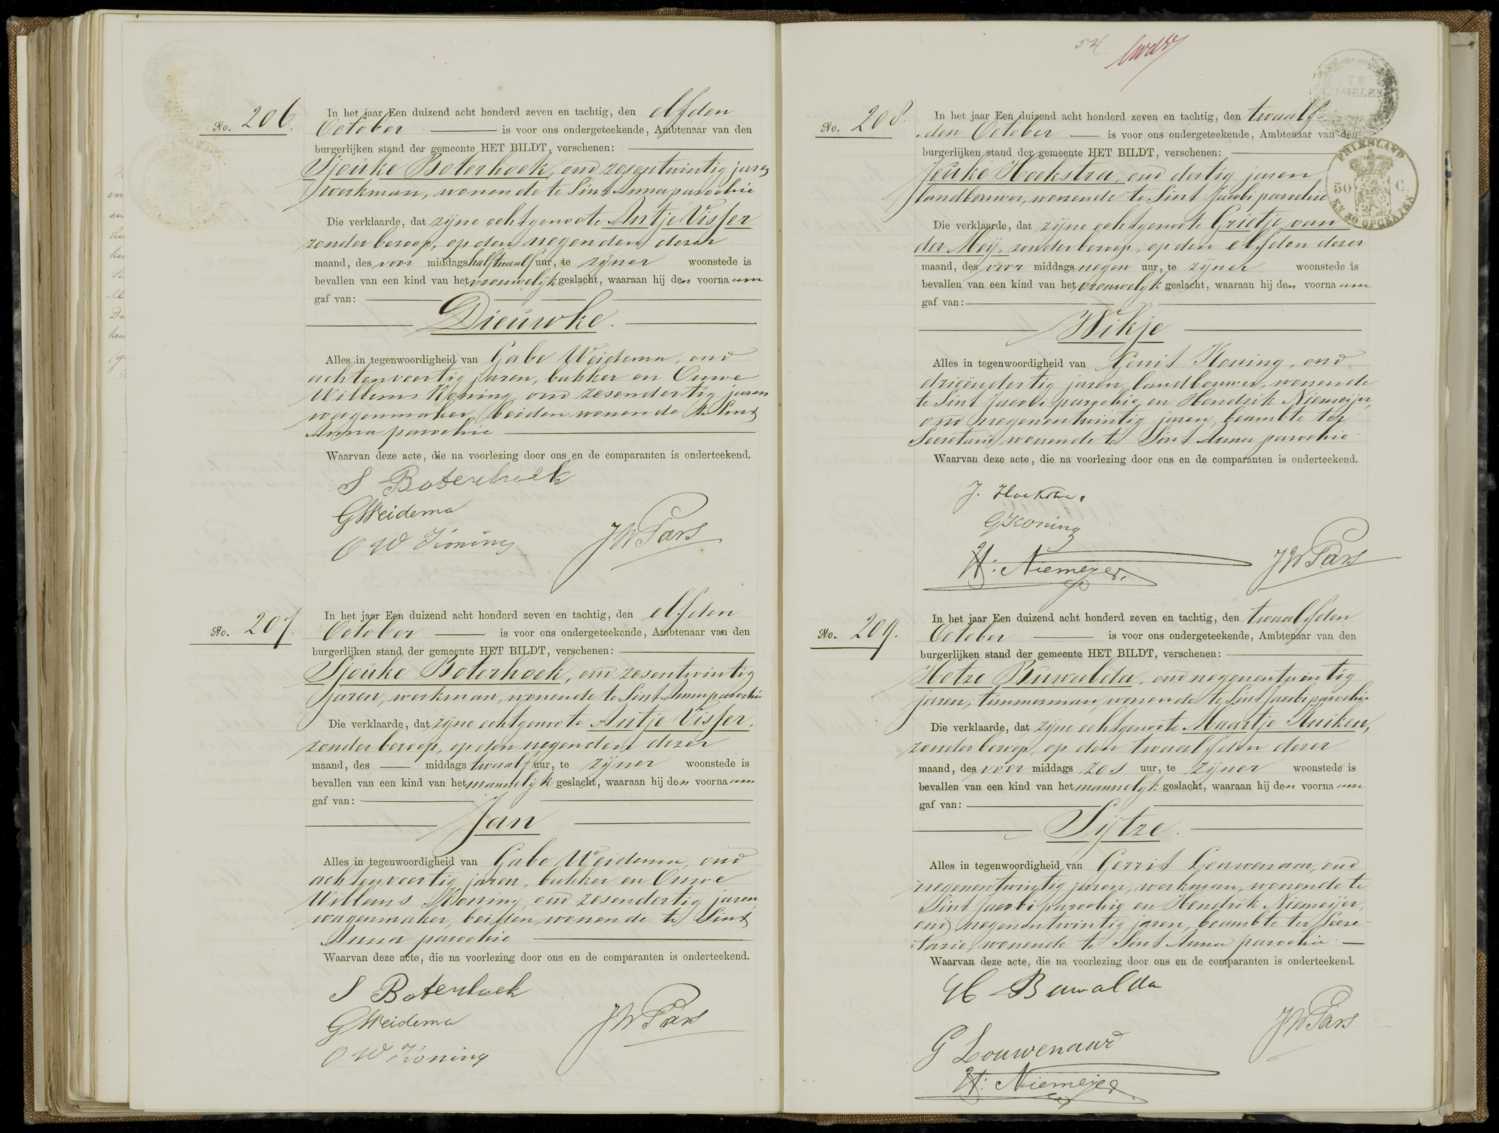 No. 206.
In het jaar Een duizend acht honderd zeven en tachtig, den elfden
October is voor ons ondergeteekende, Ambtenaar van den
burgerlijken stand der gemeente HET BILDT, verschenen:
Sjouke Boterhoek, oud zesentwintig jaren
workman, wonende te Sint Anna parochie
Die verklaarde, dat zijne echtgenoote Antje Visser
zonder beroep, op den negenden dezer
maand, des voor middags half twaalf uur, te zijner woonstede is
bevallen van een kind van het vrouwelijk geslacht, waaraan hij den voornaam
gaf van:
Dieuwke.
Alles in tegenwoordigheid van Gabe Weidema, oud
achtenveertig jaren, bakker en Ouwe
Willems Koning, oud zesendertig jaren
wagenmaker, beiden wonende te Sint
Anna parochie
Waarvan deze acte, die na voorlezing door ons en de comparanten is onderteekend.
S Boterhoek
G Weidema
O W Koning
J W Pars
No. 207.
In het jaar Een duizend acht honderd zeven en tachtig, den elfden
October is voor ons ondergeteekende, Ambtenaar van den
burgerlijken stand der gemeente HET BILDT, verschenen:
Sjouke Boterhoek, oud zesentwintig
jaren, workman, wonende te Sint Anna parochie
Die verklaarde, dat zijne echtgenoote Antje Visser,
zonder beroep, op den negenden dezer
maand, des middags twaalf uur, te zijner woonstede is
bevallen van een kind van het mannelijk geslacht, waaraan hij den voornaam
gaf van:
Jan
Alles in tegenwoordigheid van Gabe Weidema, oud
achtenveertig jaren, bakker en Ouwe
Willems Koning, oud zesendertig jaren
wagenmaker, beiden, wonende te Sint
Anna parochie
Waarvan deze acte, die na voorlezing door ons en de comparanten is onderteekend.
S Boterhoek
G Weidema
O W Koning
J W Pars
54
FRIESLAND
50 C.
EN 30 OPCENTEN
No. 208.
In het jaar Een duizend acht honderd zeven en tachtig, den twaalf
den October is voor ons ondergeteekende, Ambtenaar van den
burgerlijken stand der gemeente HET BILDT, verschenen:
Jouke Hoekstra, oud dertig jaren
landbouwer, wonende te Sint Jacobi parochie
Die verklaarde, dat zijne echtgenoote Grietje van
der Meij, zonder beroep, op den elfden dezer
maand, des voor middags negen uur, te zijner woonstede is
bevallen van een kind van het vrouwelijk geslacht, waaraan hij den voornaam
gaf van:
Wikje
Alles in tegenwoordigheid van Gerrit Koning, oud
drieëndertig jaren, landbouwer, wonende
te Sint Jacobi parochie, en Hendrik Niemeijer,
oud negenentwintig jaren, beambte ter
Secretarie, wonende te Sint Anna parochie
Waarvan deze acte, die na voorlezing door ons en de comparanten is onderteekend.
J. Hoekstra.
G Koning
H: Niemeijer.
J W Pars
No. 209.
In het jaar Een duizend acht honderd zeven en tachtig, den twaalfden
October is voor ons ondergeteekende, Ambtenaar van den
burgerlijken stand der gemeente HET BILDT, verschenen:
Hotze Buwalda, oud negenentwintig
jaren, timmerman, wonende te Sint Jacobi parochie
Die verklaarde, dat zijne echtgenoote Maartje Kuiken,
zonder beroep, op den twaalfden dezer
maand, des voor middags zes uur, te zijner woonstede is
bevallen van een kind van het mannelijk geslacht, waaraan hij den voornaam
gaf van:
Sijtze.
Alles in tegenwoordigheid van Gerrit Louwenaar, oud
negenentwintig jaren, workman, wonende te
Sint Jacobi parochie en Hendrik Niemeijer,
oud negenentwintig jaren, beambte ter Secre-
tarie, wonende te Sint Anna parochie
Waarvan deze acte, die na voorlezing door ons en de comparanten is onderteekend.
H Buwalda
G Louwenaar
H: Niemeijer
J W Pars